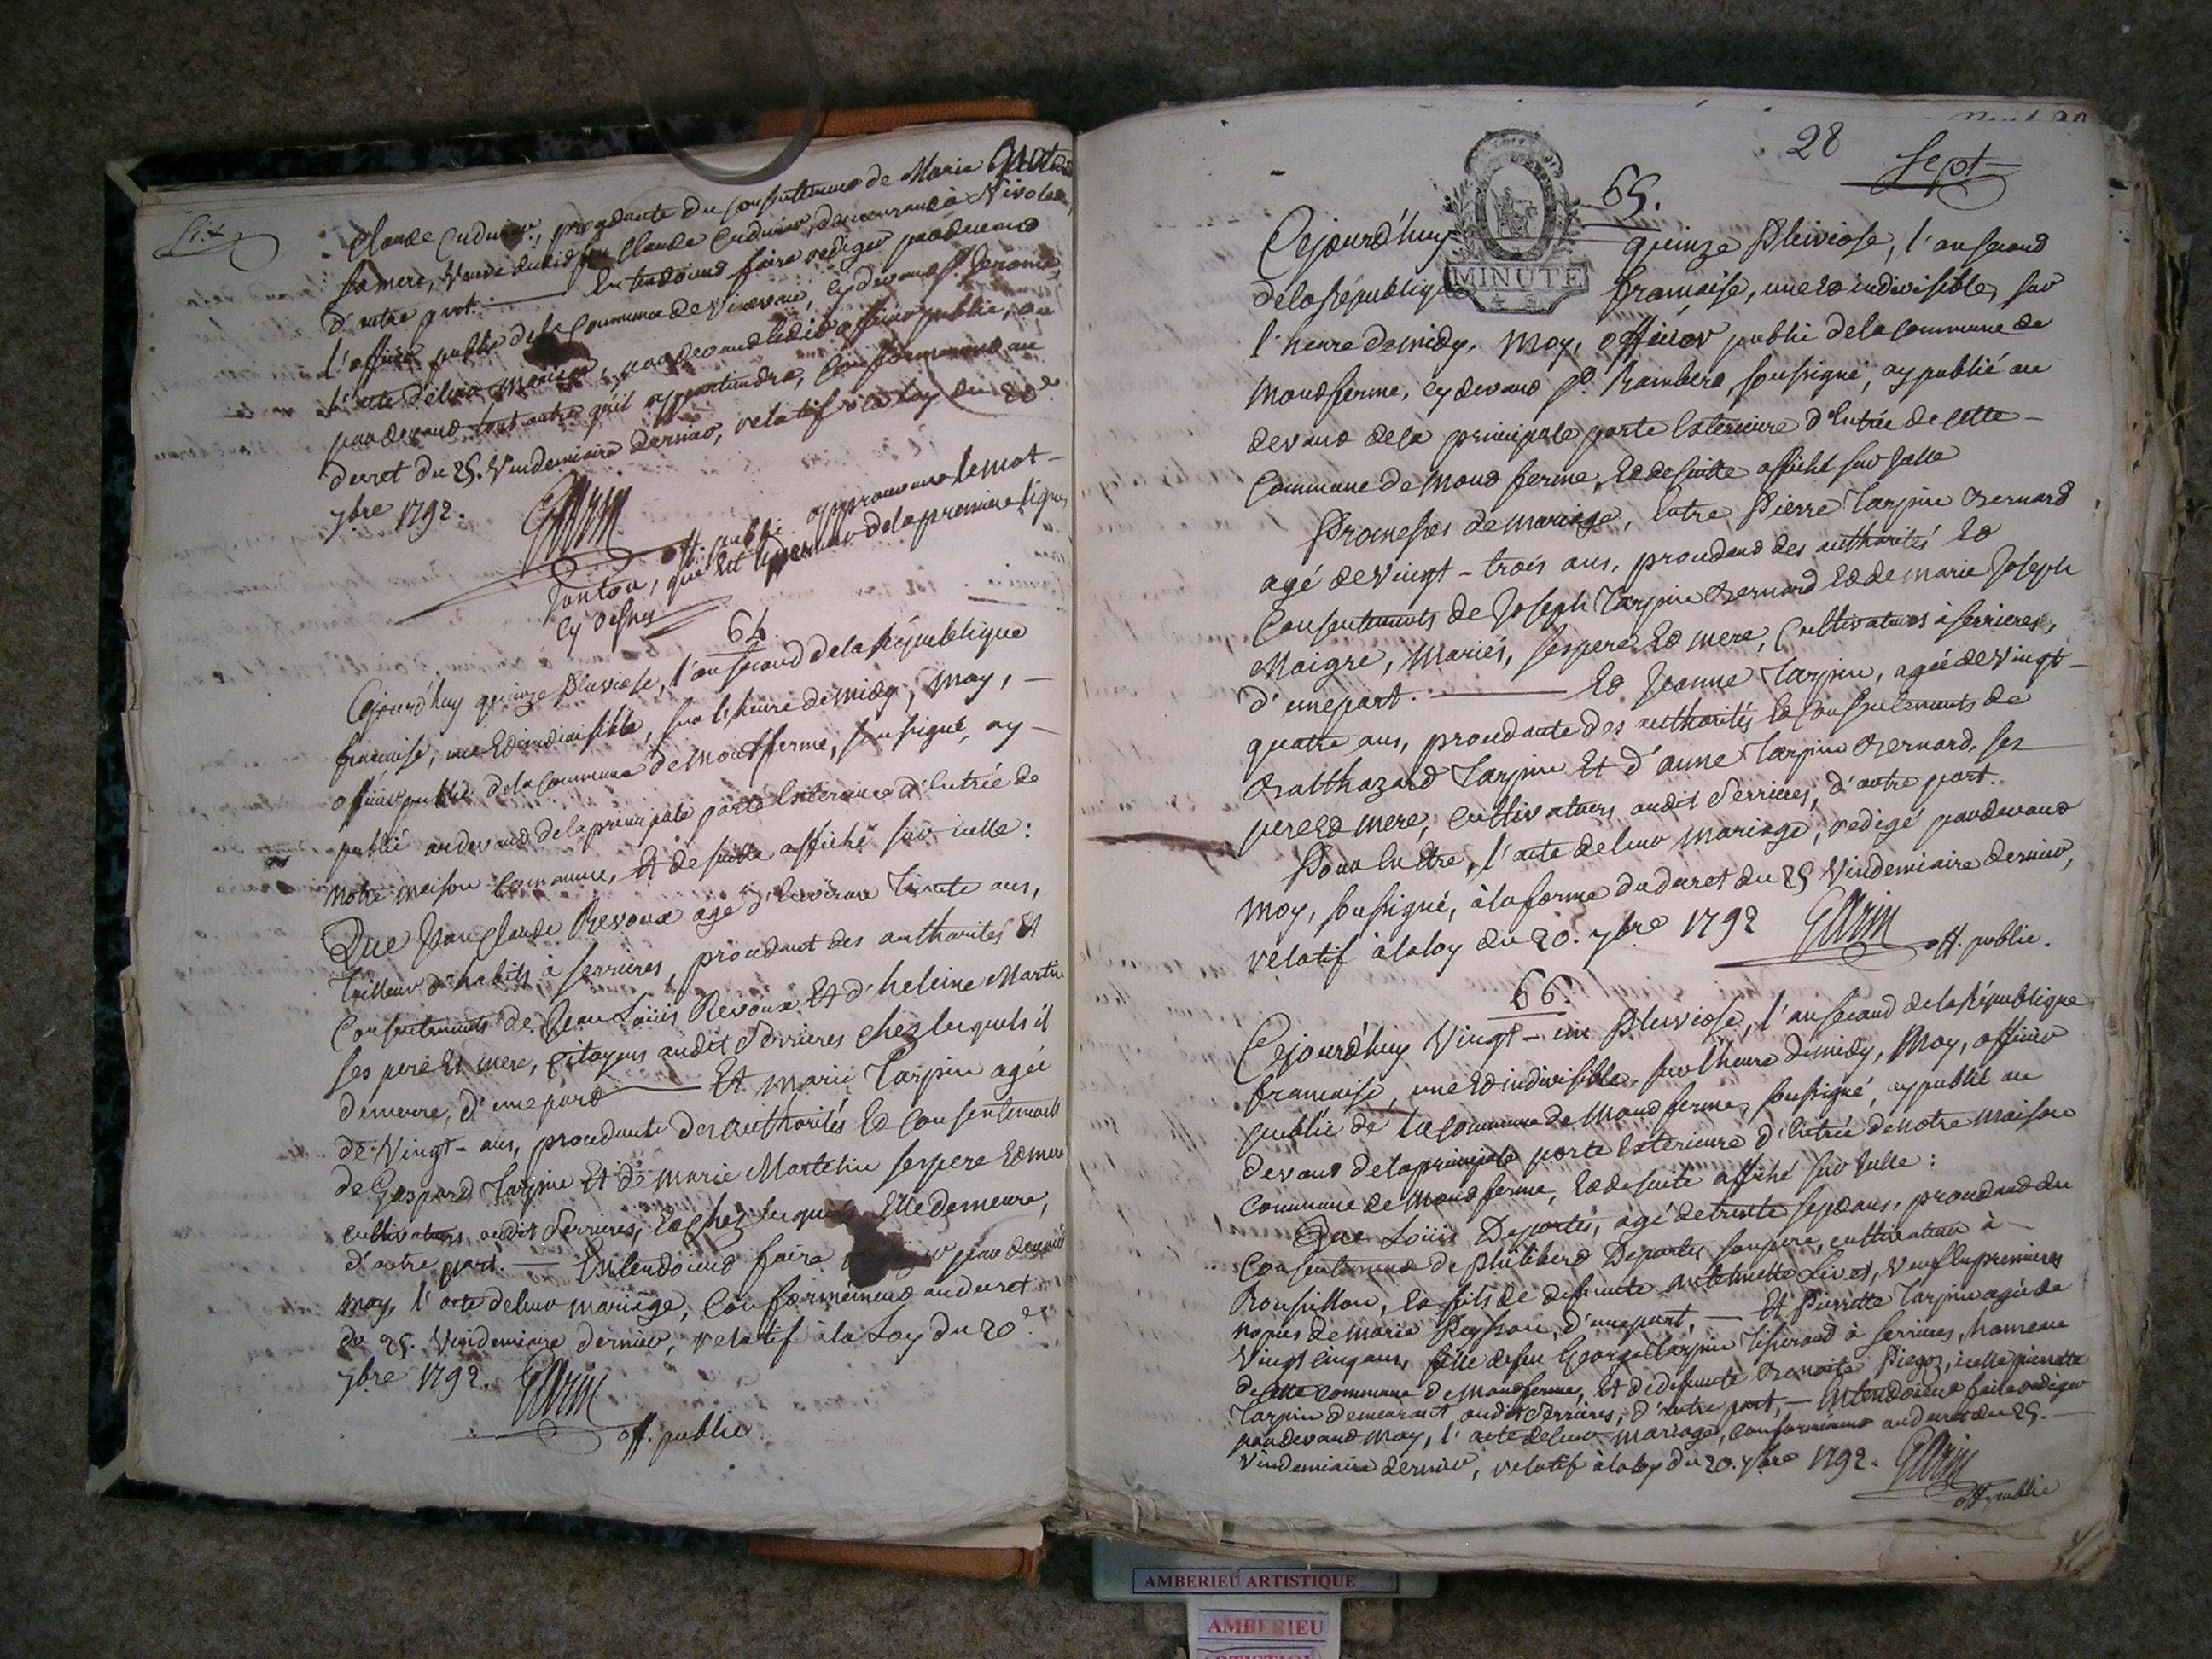 Six
Claude Cudurier, procedante du consentement de Marie
sa mere, Veuve dudit feu Claude Cudurier, demeurant à Nivolas,
d'autre part. Entendoient faire rediger pardevant
l'officier public de la Commune de Vinevauc, cy devant St. Jerome,
l'acte de leur mariage, pardevant ledit officier public, ou
pardevant tout autre qu'il appartiendra, Conformement au
decret du 25. Vindemiaire dernier, relatif à la loy du 20e.
7bre 1792.
Garin
off. public approuvant le mot
Janton, qui est le dernier de la premiere ligne
cy dessus
64.
Cejourd'huy quinze Pluviose, l'an second de la République
francaise, une et indivisible, sur l'heure de midy, moy,
officier public de la commune de Montferme, soussigné, ay
publié au devant de la principale porte Exterieure d'Entrée de
notre maison Commune, Et de suitte affiché sur icelle :
Que Jean Claude Revoux agé d'environ Trente ans,
Tailleur d'habits à Serrieres, procedant des authorités Et
Consentements de Jean Loüis Revoux Et d'heleine Martin
ses pere Et mere, Citoyens audit Serrieres chez lesquels il
demeure, d'une part Et Marie Tarpin agée
de Vingt-ans, procedante des authorités Et Consentements
de Gaspard Tarpin Et de Marie Martelin ses pere Et mere
cultivateurs audit Serrieres, Et chez lesquels Elle demeure,
d'autre part. Entendoient faire par devant
moy, l'acte de leur mariage, Conformément au decret
du 25. Vindemiaire dernier, relatif à la Loy du 20e.
7bre 1792. Garin
off. public
28
Sept
65.
MINUTE
Cejourd'huy quinze Pluviose, l'an second
de la République francaise, une et indivisible, sur
l'heure de midy, moy, officier public de la commune de
Montferme, cy devant St. Rambert, soussigné, ay publié au
devant de la principale porte Exterieure d'Entrée de cette
Commune de Montferme, Et de suitte affiché sur Jcelle
Promesses de mariage, Entre Pierre Tarpin Bernard
agé de Vingt-trois ans, procedant des authorités Et
Consentements de Joseph Tarpin Bernard Et de Marie Joseph
Maigre, mariés, ses pere Et mere, Cultivateurs à Serrieres,
d'une part. Et Jeanne Tarpin, agée de Vingt-
quatre ans, procedante des authorités Et Consentements de
Balthazard Tarpin Et d'anne Tarpin Bernard, ses
pere Et mere, Cultivateurs audit Serrieres, d'autre part.
Pour En Etre, l'acte de leur mariage, redigé pardevant
moy, soussigné, à la forme du decret du 25 Vindemiaire dernier,
relatif à la loy du 20. 7bre 1792 Garin
off. public.
66.
Cejourd'huy Vingt-un Pluviose, l'an second de la République
francaise, une Et indivisible, sur l'heure de midy, Moy, officier
public de la Commune de Montferme, soussigné, ay publié au
devant de la principale porte Exterieure d'Entrée de notre maison
Commune de Montferme, Et de suite affiché sur Jcelle :
Que Loüis Deportes, agé de trente sept ans, procedant du
Consentement de Philibert Deportes son pere, cultivateur à
Roussillon, Et fils de deffunte Antoinette Livet, Veuf En premieres
nopces de Marie Peysson, d'une part, Et Pierrette Tarpin agée de
Vingt cinq ans, fille de feu George Tarpin Tisserand à Serrieres, hameau
de cette Commune de Montferme, Et de deffunte Benoite icelle pierrette
Tarpin demeurant audit Serrieres, d'autre part, Entendoient faire rediger
pardevant moy, l'acte de leur mariage, conformément au decret du 25.
Vindemiaire dernier, relatif à la loy du 20. 7bre 1792. Garin
off. public
AMBERIEU ARTISTIQUE
AMBERIEU